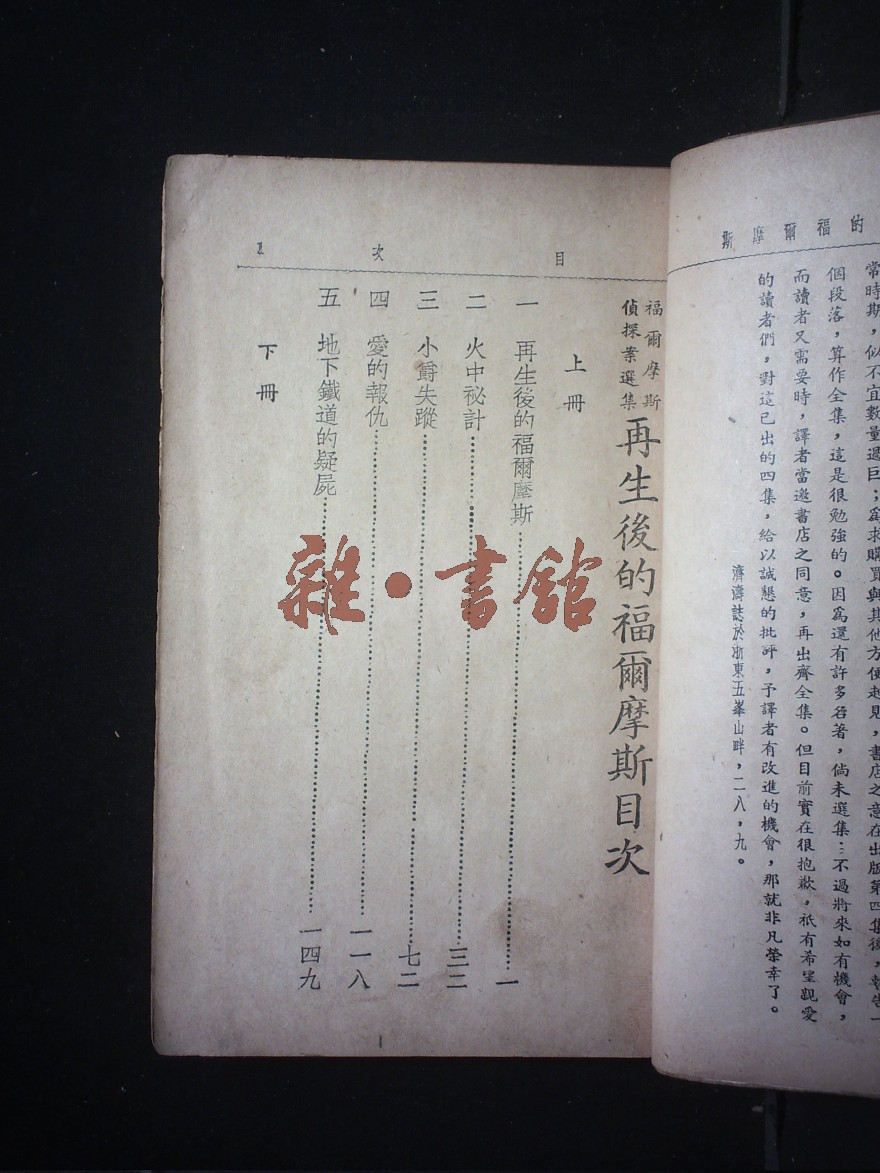 的福爾摩斯
常時期，似不宜數量過巨；為求購買與其他方便起見，書店之意在出版第四集後，報告一
個段落，算作全集，這是很勉強的。因為還有許多名著，倘未選集…不過將來如有機會，
而讀者又需要時，譯者當邀書店之同意，再出齊全集。但目前實在很抱歉，祇有希望親愛
的讀者們，對這已出的四集，給以誠懇的批評，予譯者有改進的機會，那就非凡榮幸了。
濟濤誌於浙東五峯山畔，二八，九。
目次 1
福爾摩斯
偵探案選集
再生後的福爾摩斯目次
上冊
一 再生後的福爾摩斯……一
二 火中祕計……三二
三 小爵失蹤……七二
四 愛的報仇……一一八
五 地下鐵道的疑屍……一四九
下冊
雜·書舘